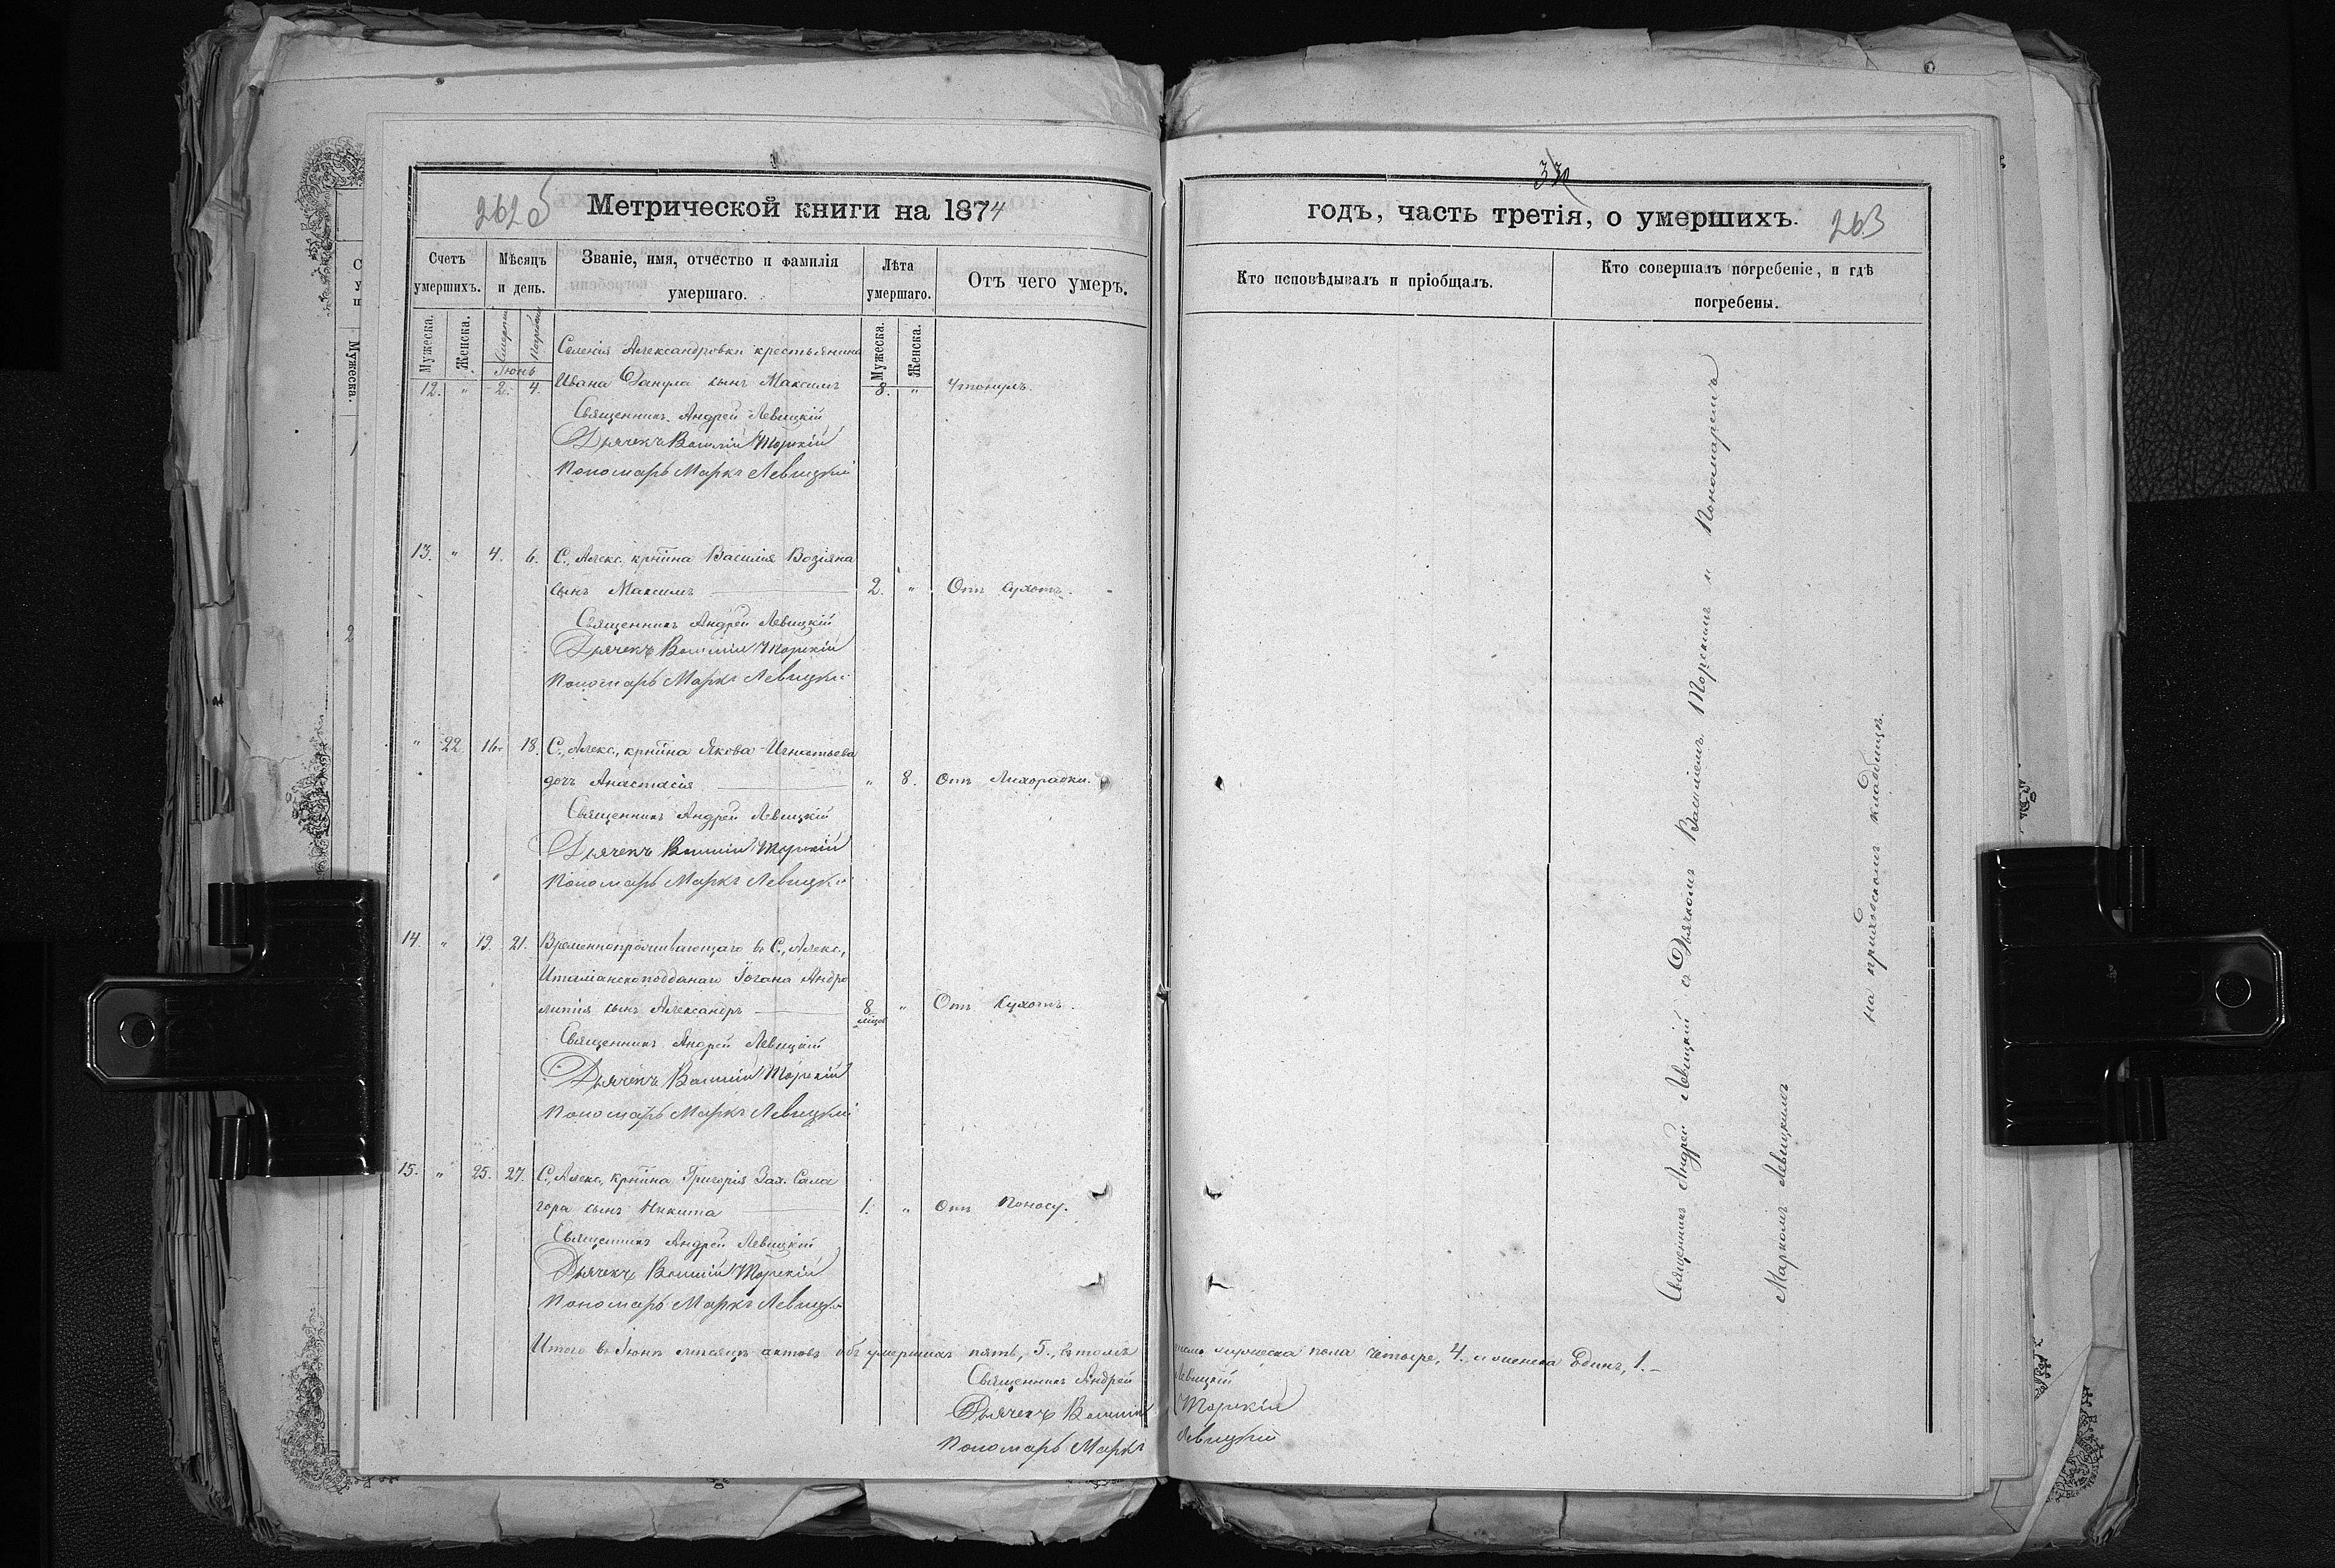 262 б
Метрической книги на 1874
Счетъ умершихъ.
Мѣсяцъ и день.
Званіе, имя, отчество и фамилія умершаго.
Лѣта умершаго.
Отъ чего умеръ.
Мужеска.
Женска.
Смерти
Погребенія
Мужеска.
Женска.
Іюнь
Селенія Александровки крестьянина
12. " 2. 4. Ивана Данула сынъ Максимъ 8. " Утонулъ.
Священникъ Андрей Левицкій
Дьячекъ Василій Торскій
Пономарь Маркъ Левицкій
13. " 4. 6. С. Алекс. крнина Василія Возіяна
сынъ Максимъ 2. " Отъ Сухотъ.
Священникъ Андрей Левицкій
Дьячекъ Василій Торскій
Пономарь Маркъ Левицкій
" 22. 16. 18. С. Алекс., крнина Якова Игнатьева
дочь Анастасія " 8. Отъ Лихорадки.
Священникъ Андрей Левицкій
Дьячекъ Василій Торскій
Пономарь Маркъ Левицкій
14. " 19. 21. Временнопроживающаго въ С. Алекс.,
Италіанскоподданаго Іогана Андро
литія сынъ Александръ 8 мѣсяц. " Отъ Сухотъ.
Священникъ Андрей Левицкій
Дьячекъ Василій Торскій
Пономарь Маркъ Левицкій
15. " 25. 27. С. Алекс. крнина Григорія Зах. Сала
гора сынъ Никита 1. " Отъ Поносу.
Священникъ Андрей Левицкій
Дьячекъ Василій Торскій
Пономарь Маркъ Левицкій
Итого въ Іюнѣ мѣсяцѣ актовъ объ умершихъ пять, 5., въ томъ
Священникъ Андрей
Дьячекъ Василій
Пономарь Маркъ
годъ, часть третія, о умершихъ.
263
Кто исповѣдывалъ и пріобщалъ.
Кто совершалъ погребеніе, и гдѣ погребены.
Священникъ Андрей Левицкій съ Дьячкомъ Василіемъ Торскимъ и Пономаремъ
Маркомъ Левицкимъ
на приходскомъ кладбищѣ.
числѣ мужеска пола четыре, 4., и женска Единъ, 1.
Левицкій
Торскій
Левицкій